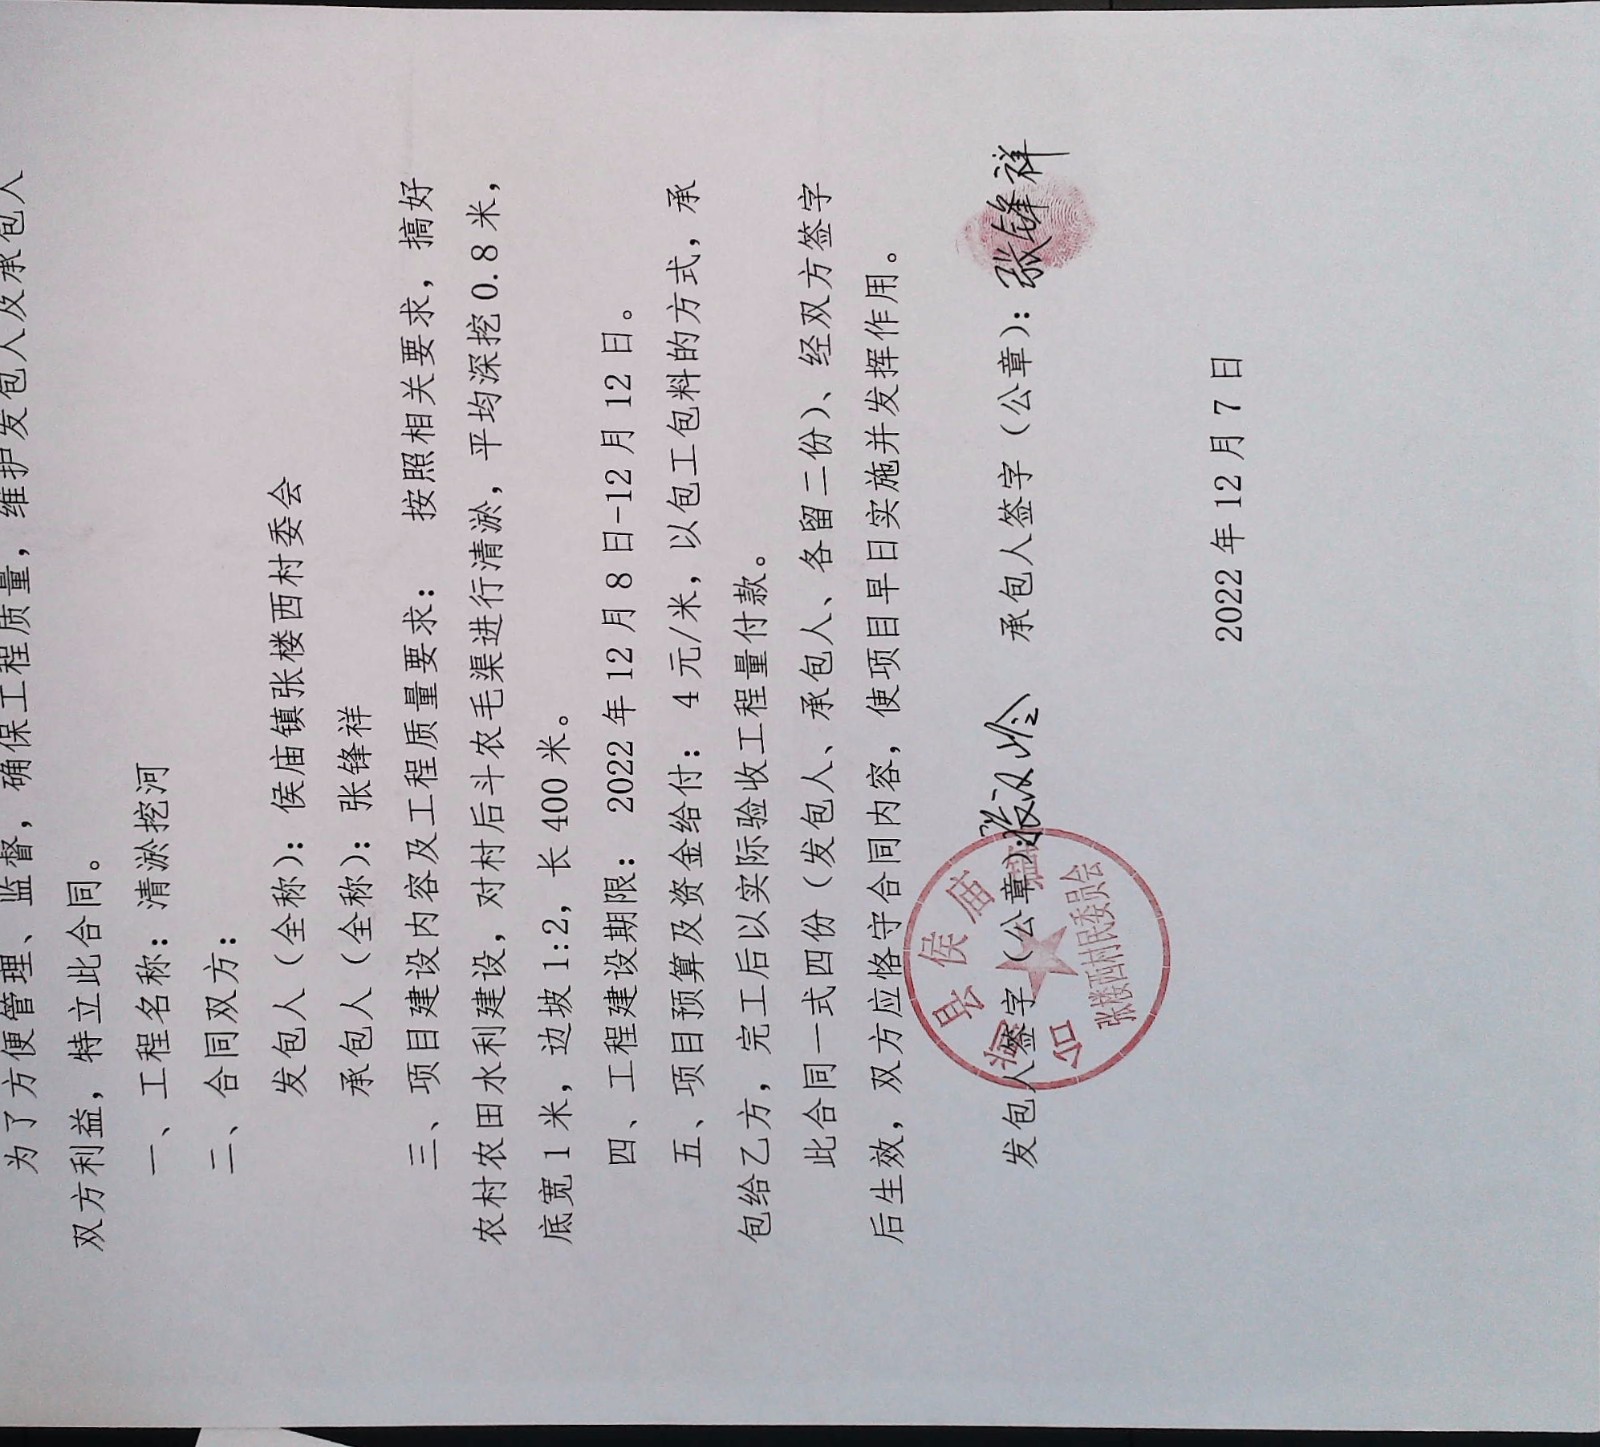 为了方便管理、监督，确保工程质量，维护发包人及承包人
双方利益，特立此合同。
一、工程名称：清淤挖河
二、合同双方：
发包人（全称）：侯庙镇张楼西村委会
承包人（全称）：张锋祥
三、项目建设内容及工程质量要求： 按照相关要求，搞好
农村农田水利建设，对村后斗农毛渠进行清淤，平均深挖0.8米，
底宽1米，边坡1:2，长400米。
四、工程建设期限：2022年12月8日-12月12日。
五、项目预算及资金给付：4元/米，以包工包料的方式，承
包给乙方，完工后以实际验收工程量付款。
此合同一式四份（发包人、承包人、各留二份）、经双方签字
后生效，双方应恪守合同内容，使项目早日实施并发挥作用。
发包人签字（公章）： 承包人签字（公章）：张锋祥
台县侯庙镇
张楼西村民委员会
2022年12月7日